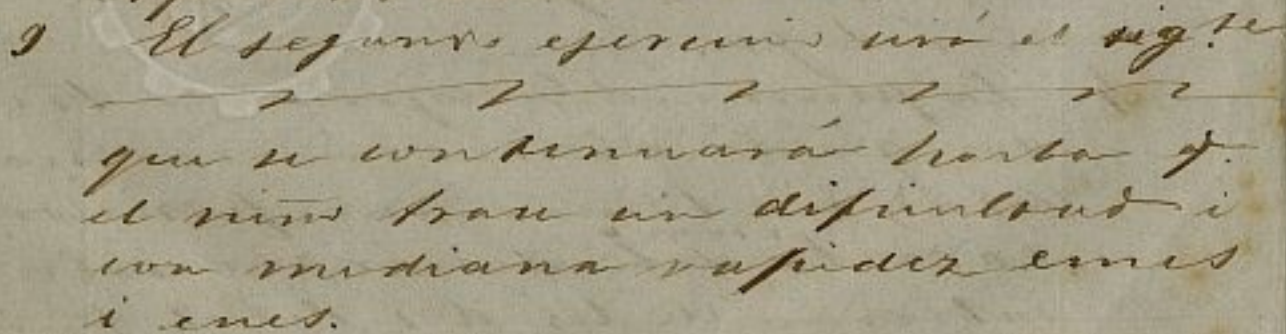 9 El segundo ejercicio será el sig.te
que se continuará hasta q.
el niño trace sin dificultad i
con mediana rapidez emes
i enes.